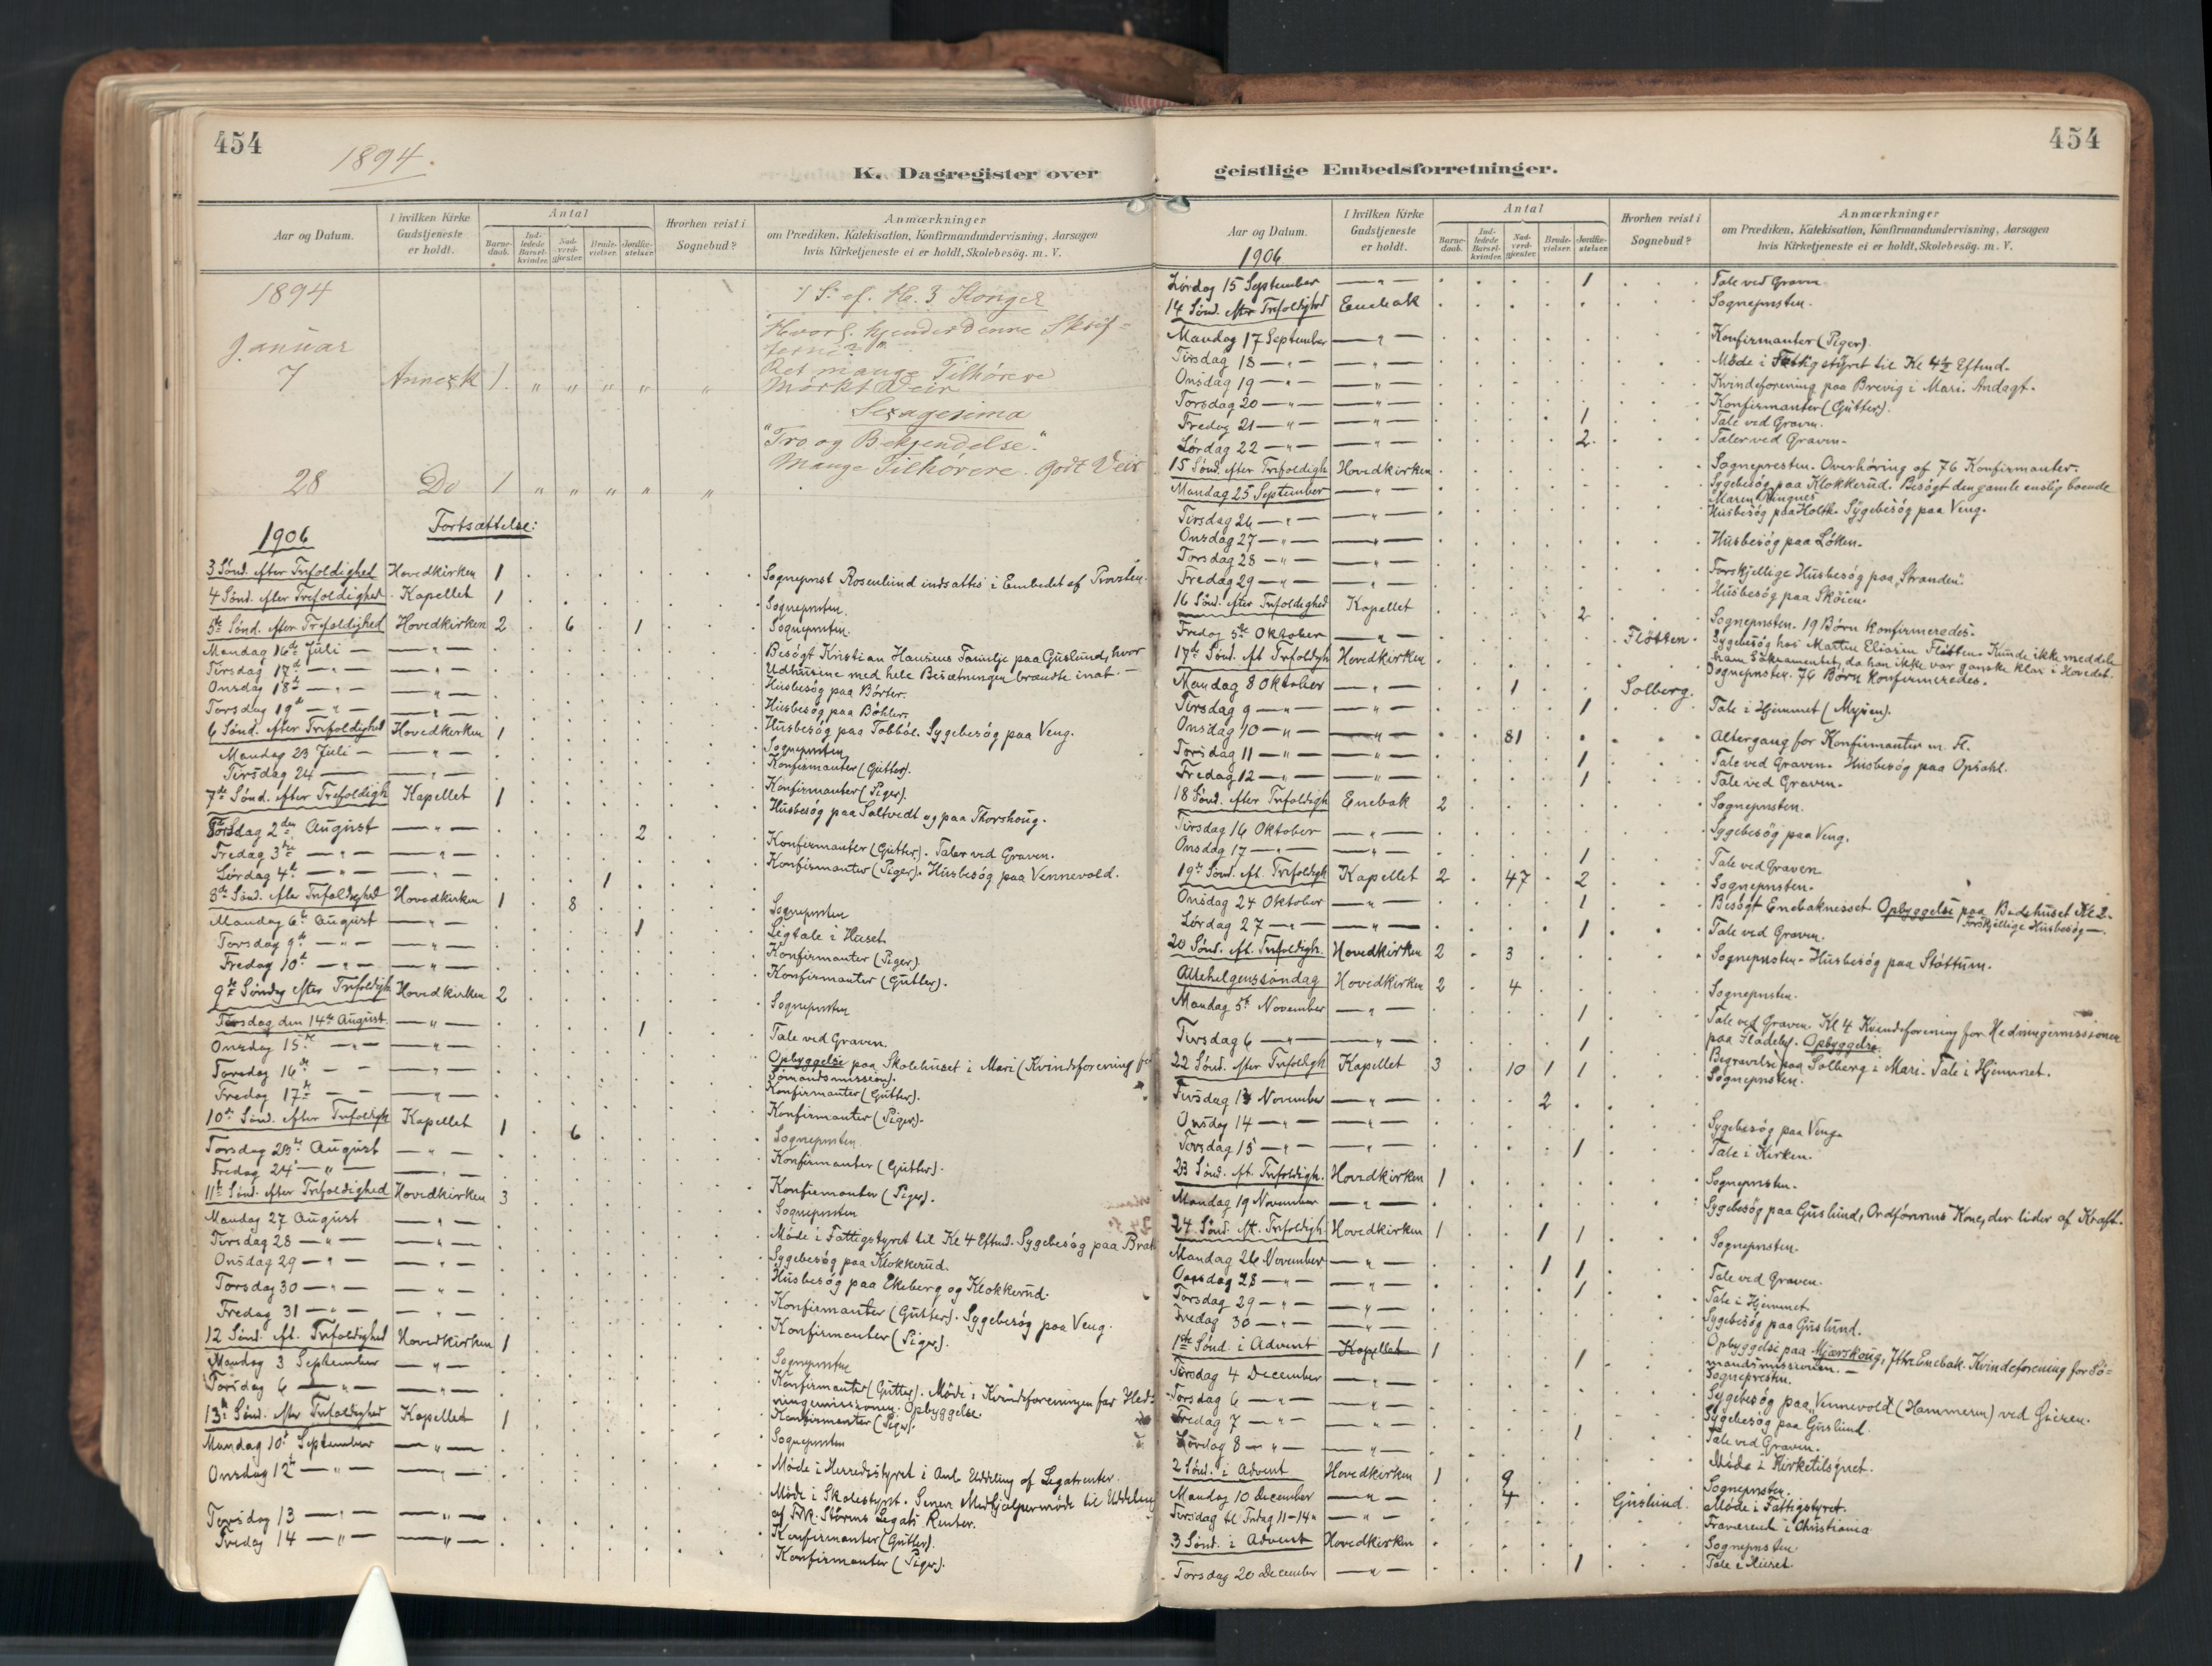 454
1894.
K. Dagregister over
Aar og Datum.
I hvilken Kirke Gudstjeneste er holdt.
Antal
Barnedaab.
Indledede Barselkvinder.
Nadverdgjester.
Brudevielser.
Jordfæstelser.
Hvorhen reist i Sognebud?
Anmærkninger
om Prædiken, Katekisation, Konfirmandundervisning, Aarsagen
hvis Kirketjeneste ei er holdt, Skolebesög. m. V.
1894
1 S. ef. H. 3 Konger
Januar
7 Annexk 1. " " " " "
Ret mange Tilhörere
Mörkt Veir
Sexagesima
"Tro og Bekjendelse."
Mange Tilhörere. Godt Veir
28 Do 1 " " " " "
Fortsættelse:
1906
3 Sönd. efter Trefoldighed Hovedkirken 1 Sogneprest Rosenlund indsattes i Embedet af Provsten.
4 Sönd. efter Trefoldighed Kapellet 1 Sognepresten.
5te Sönd. efter Trefoldighed Hovedkirken 2 6 1 Sognepresten.
Mandag 16de Juli — " — Besögt Kristian Hansens Familje paa Guslund, hvor
Udhusene med hele Besætningen brændte inat. —
Tirsdag 17de — " — Husbesög paa Börter.
Onsdag 18de — " — Husbesög paa Böhler.
Torsdag 19de — " — Husbesög paa Tobböl. Sygebesög paa Veng.
6 Sönd. efter Trefoldighed Hovedkirken 1 Sognepresten
Mandag 23 Juli — " — Konfirmanter (Gutter).
Tirsdag 24 — " — Konfirmanter (Piger).
Husbesög paa Saltvedt og paa Thorshoug.
7de Sönd. efter Trefoldigh Kapellet 1
Torsdag 2den August — " — 2 Konfirmanter (Gutter). Taler ved Graven.
Fredag 3die — " — Konfirmanter (Piger). Husbesög paa Vennevold.
Lördag 4de — " — 1
8de Sönd. efter Trefoldighed Hovedkirken 1 8 Sognepresten
Mandag 6te August — " — 1 Ligtale i Huset
Torsdag 9de — " — Konfirmanter (Piger).
Fredag 10de — " — Konfirmanter (Gutter).
9de Söndag efter Trefoldigh Hovedkirken 2 Sognepresten
Tirsdag den 14de August. — " — 1 Tale ved Graven.
Onsdag 15de — " — Opbyggelse paa Skolehuset i Mari (Kvindeforening for
Sömandsmission).
Torsdag 16de — " — Konfirmanter (Gutter).
Fredag 17de — " — Konfirmanter (Piger).
10de Sönd. efter Trefoldigh Kapellet 1 6 Sognepresten
Torsdag 23de August — " — Konfirmanter (Gutter).
Fredag 24 — " — Konfirmanter (Piger).
11te Sönd. efter Trefoldighed Hovedkirken 3 Sognepresten
Mandag 27 August — " — Möde i Fattigstyret til Kl 4 Eftmd. Sygebesög paa
Tirsdag 28 — " — Sygebesög paa Klokkerud.
Onsdag 29 — " — Husbesög paa Ekeberg og Klokkerud.
Torsdag 30 — " — Konfirmanter (Gutter). Sygebesög paa Veng.
Fredag 31 — " — Konfirmanter (Piger).
12 Sönd. eft. Trefoldighed Hovedkirken 1 Sognepresten
Mandag 3 September — " — Konfirmanter (Gutter). Möde i Kvindeforeningen for Hed-
ningemissionen. Opbyggelse.
Torsdag 6 — " — Konfirmanter (Piger).
13de Sönd. efter Trefoldighed Kapellet 1 Sognepresten
Mandag 10de September — " — Möde i Herredsstyret i Anl. Uddeling af Legatrenter.
Onsdag 12te — " — Möde i Skolestyret. Senere Medhjælpermöde til Uddeling
af Störms Legats Renter.
Torsdag 13 — " — Konfirmanter (Gutter).
Fredag 14 — " — Konfirmanter (Piger).
454
geistlige Embedsforretninger.
Aar og Datum.
I hvilken Kirke Gudstjeneste er holdt.
Antal
Barnedaab.
Indledede Barselkvinder.
Nadverdgjester.
Brudevielser.
Jordfæstelser.
Hvorhen reist i Sognebud?
Anmærkninger
om Prædiken, Katekisation, Konfirmandundervisning, Aarsagen
hvis Kirketjeneste ei er holdt, Skolebesög. m. V.
1906
Lördag 15 September — " — 1 Tale ved Graven
14 Sönd. efter Trefoldighed Enebak Sognepresten.
Mandag 17 September — " — Konfirmanter (Piger).
Tirsdag 18 — " — Möde i Fattigstyret til Kl 4½ Eftmd.
Onsdag 19 — " — Kvindeforening paa Brevig i Mari. Andagt.
Torsdag 20 — " — Konfirmanter (Gutter).
Fredag 21 — " — 1 Tale ved Graven.
Lördag 22 — " — 2 Taler ved Graven.
15 Sönd. efter Trefoldigh Hovedkirken Sognepresten. Overhöring af 76 Konfirmanter.
Mandag 25 September — " — Sygebesög paa Klokkerud. Besögt den gamle enslig boende
Maren Ringnes
Tirsdag 26 — " — Husbesög paa Holtk. Sygebesög paa Veng.
Onsdag 27 — " — Husbesög paa Löken.
Torsdag 28 — " — Forskjellige Husbesög paa "Stranden".
Fredag 29 — " — Husbesög paa Sköien.
16 Sönd. efter Trefoldighed Kapellet 2 Sognepresten. 19 Börn konfirmeredes.
Fredag 5te Oktober — " — Flötten. Sygebesög hos Martin Eliasen Flötten. Kunde ikke meddele
ham Sakramentet, da han ikke var ganske klar i Hovedet.
17de Sönd. eft Trefoldigh Hovedkirken Sognepresten. 76 Börn konfirmeredes.
Mandag 8 Oktober — " — 1 Solberg.
Tirsdag 9 — " — 1 Tale i Hjemmet (Myren).
Onsdag 10 — " — 81 Altergang for Konfirmanter m. Fl.
Torsdag 11 — " — 1 Tale ved Graven. Husbesög paa Opsahl.
Fredag 12 — " — 1 Tale ved Graven.
18 Sönd. efter Trefoldigh Enebak 2 Sognepresten.
Tirsdag 16 Oktober — " — Sygebesög paa Veng.
Onsdag 17 — " — 1 Tale ved Graven
19de Sönd. eft. Trefoldigh Kapellet 2 47 2 Sognepresten.
Onsdag 24 Oktober — " — 1 Besögt Enebaknesset. Opbyggelse paa Bedehuset Kl 2.
Forskjellige Husbesög —.
Lördag 27 — " — 1 Tale ved Graven.
20 Sönd. eft. Trefoldigh. Hovedkirken 2 3 Sognepresten. Husbesög paa Stöttum.
Allehelgenssöndag Hovedkirken 2 4 Sognepresten.
Mandag 5te November — " — 1 Tale ved Graven. Kl 4 Kvindeforening for Hedningemissionen
paa Fladeby. Opbyggelse.
Tirsdag 6 — " — 1 Begravelse paa Solberg i Mari. Tale i Hjemmet.
22 Sönd. efter Trefoldigh Kapellet 3 10 1 1 Sognepresten.
Tirsdag 13 November — " — 2
Onsdag 14 — " — Sygebesög paa Veng.
Torsdag 15 — " — 1 Tale i Kirken.
23 Sönd. eft. Trefoldigh. Hovedkirken 1 Sognepresten.
Mandag 19 November — " — Sygebesög paa Guslund, Ordförerens Kone, der lider af Kræft.
24 Sönd. eft. Trefoldigh. Hovedkirken 1 1 1 Sognepresten.
Mandag 26 November — " — 1 1 Tale ved Graven.
Onsdag 28 — " — 1 Tale i Hjemmet
Torsdag 29 — " — Sygebesög paa Guslund.
Fredag 30 — " — Opbyggelse paa Mjærskoug, Ytre Enebak. Kvindeforening for Sö-
mandsmissionen. —
1ste Sönd. i Advent Kapellet 1 1 Sognepresten.
Tirsdag 4 December — " — Sygebesög paa Vennevold (Hammeren) ved Gieren.
Torsdag 6 — " — Sygebesög paa Guslund.
Fredag 7 — " — 1 Tale ved Graven.
Lördag 8 — " — Möde i Kirketilsynet.
2 Sönd. i Advent Hovedkirken 1 9 Sognepresten.
Mandag 10 December — " — 4 Guslund. Möde i Fattigstyret.
Tirsdag til Fredag 11-14de — " — Fraværende i Christiania
3 Sönd. i Advent Hovedkirken Sognepresten.
Torsdag 20 December — " — 1 Tale i Huset.